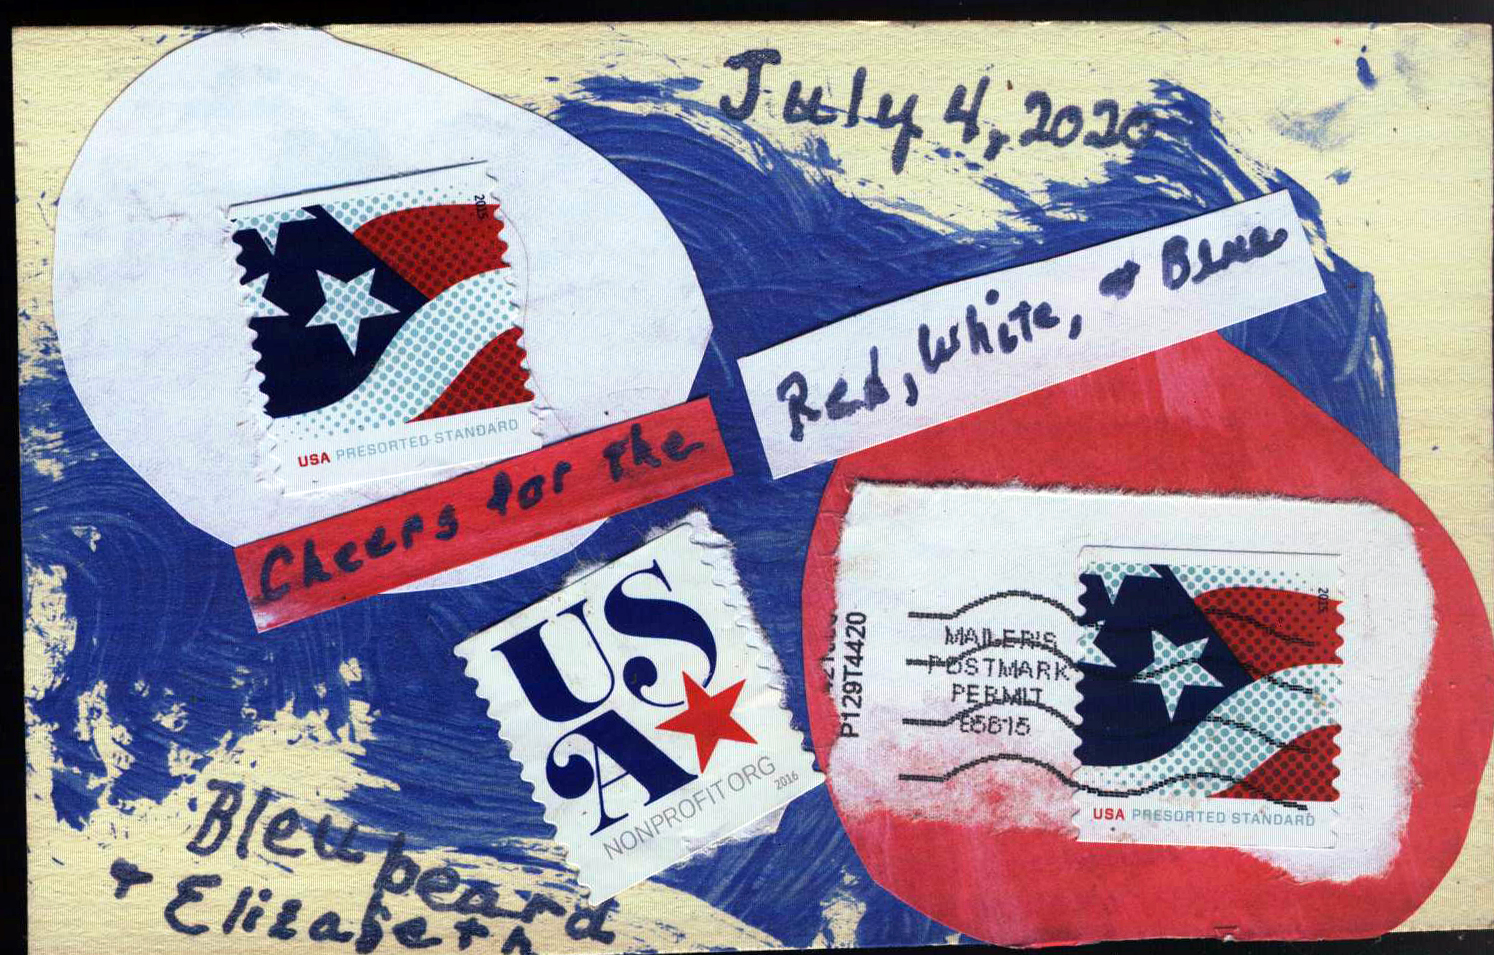 July 4, 2020
2015
USA PRESORTED STANDARD
Cheers for the
Red, White, + Blue
USA
NONPROFIT ORG
2016
P129T4420
MAILER'S
POSTMARK
PERMIT
2015
USA PRESORTED STANDARD
Bleubeard
+ Elizabeth